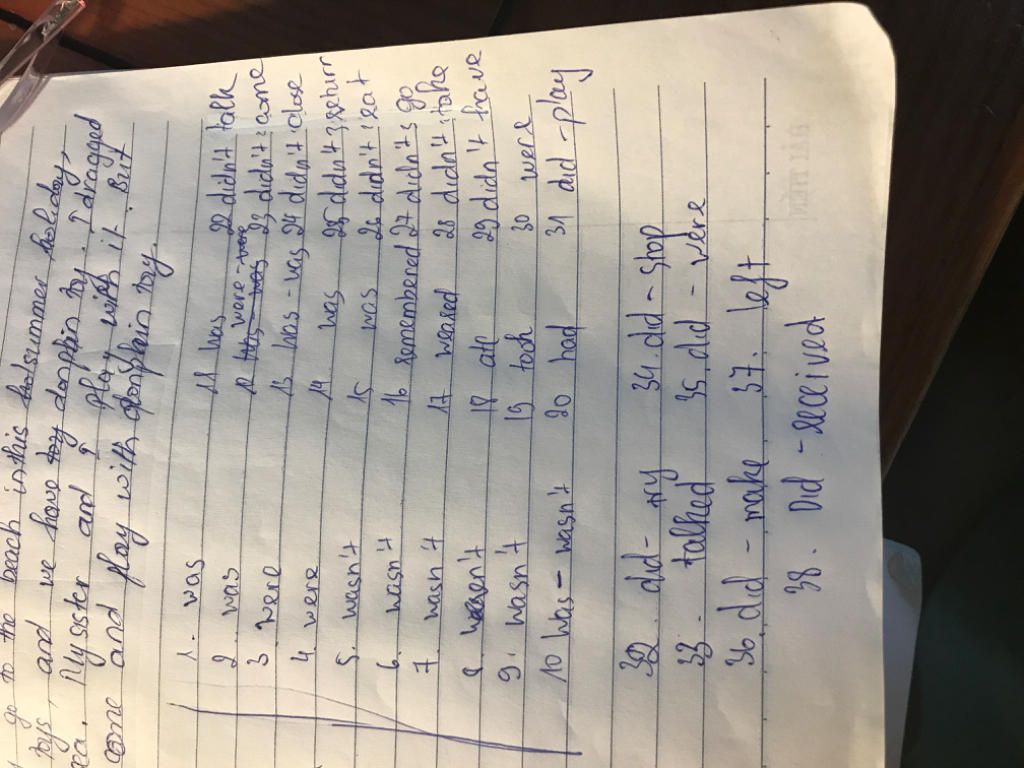 go to the beach in this hotsummer holiday,
toys, and we have toy donphin toy. I dragged
sea. My sister and I play with it. But
come and play with donphin toy.
1. was 11 was 22 didn't talk
2. was 12 were - were 23 didn't come
3 were 13 was - was 24 didn't close
4. were 14 was 25 didn't return
5. wasn't 15 was 26 didn't eat
6. wasn't 16 remembered 27 didn't go
7 wasn't 17 weared 28 didn't take
8 wasn't 18 ate 29 didn't have
9. wasn't 19 took 30 were
10 was - wasn't 20 had 31 did - play
32. did - try 34. did - stop
33. talked 35. did - were
36. did - make 37. left
38. Did - received